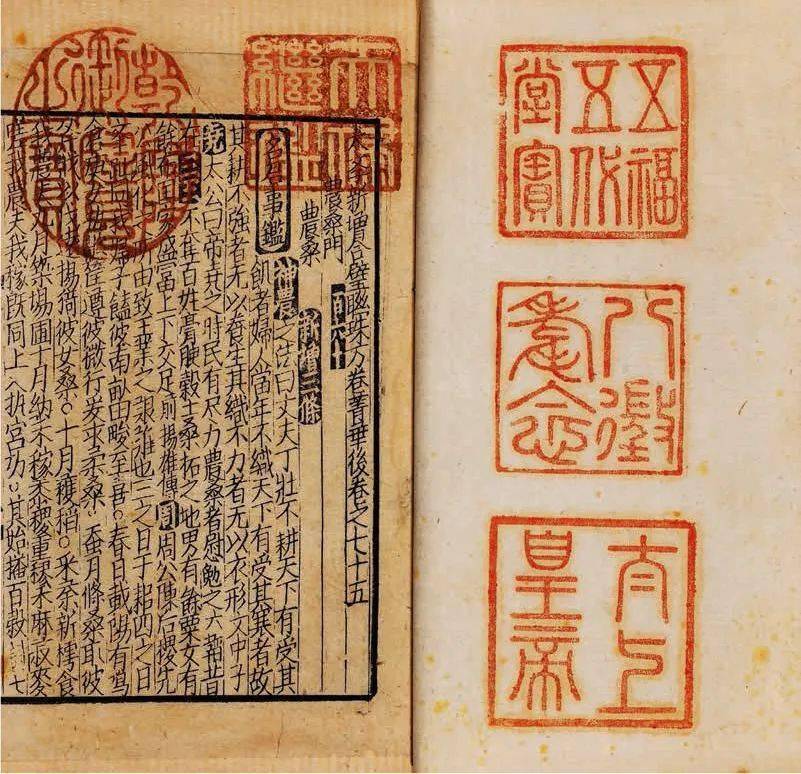 五福
五代
堂寶
八徵
耄念
太上
皇帝
天祿
繼鑑
乾隆
御覽
之寶
太學新增合璧聯珠万卷菁華後卷之七十五
農桑門 百六十
農桑 新增三條
事鑑 神農之法曰丈夫丁壯不耕天下有受其
飢者婦人當年不織天下有受其寒者故
其耕不強者无以養生其織不力者无以衣形文中子
堯太公曰帝堯之時民有尺力農桑者慰勉之六韜
不奪百姓膏腴穀土桑柘之地男有餘粟女有
餘布國家盛富上下交足前揚雄傳 周 周公陳后稷先
公風化之由致王業之艱難也三之日于耜四之日
舉趾同我婦子饁彼南畝田畯至喜○春日載陽有鳴
倉庚女執懿筐遵彼微行爰求柔桑 蚕月條桑取彼
斧斨以伐遠揚猗彼女桑○十月穫稻○采荼薪樗食
我農夫九月築場圃十月納禾稼黍稷重穋禾麻菽麥
嗟我農夫我稼既同上入執宮功○其始播百穀詩七